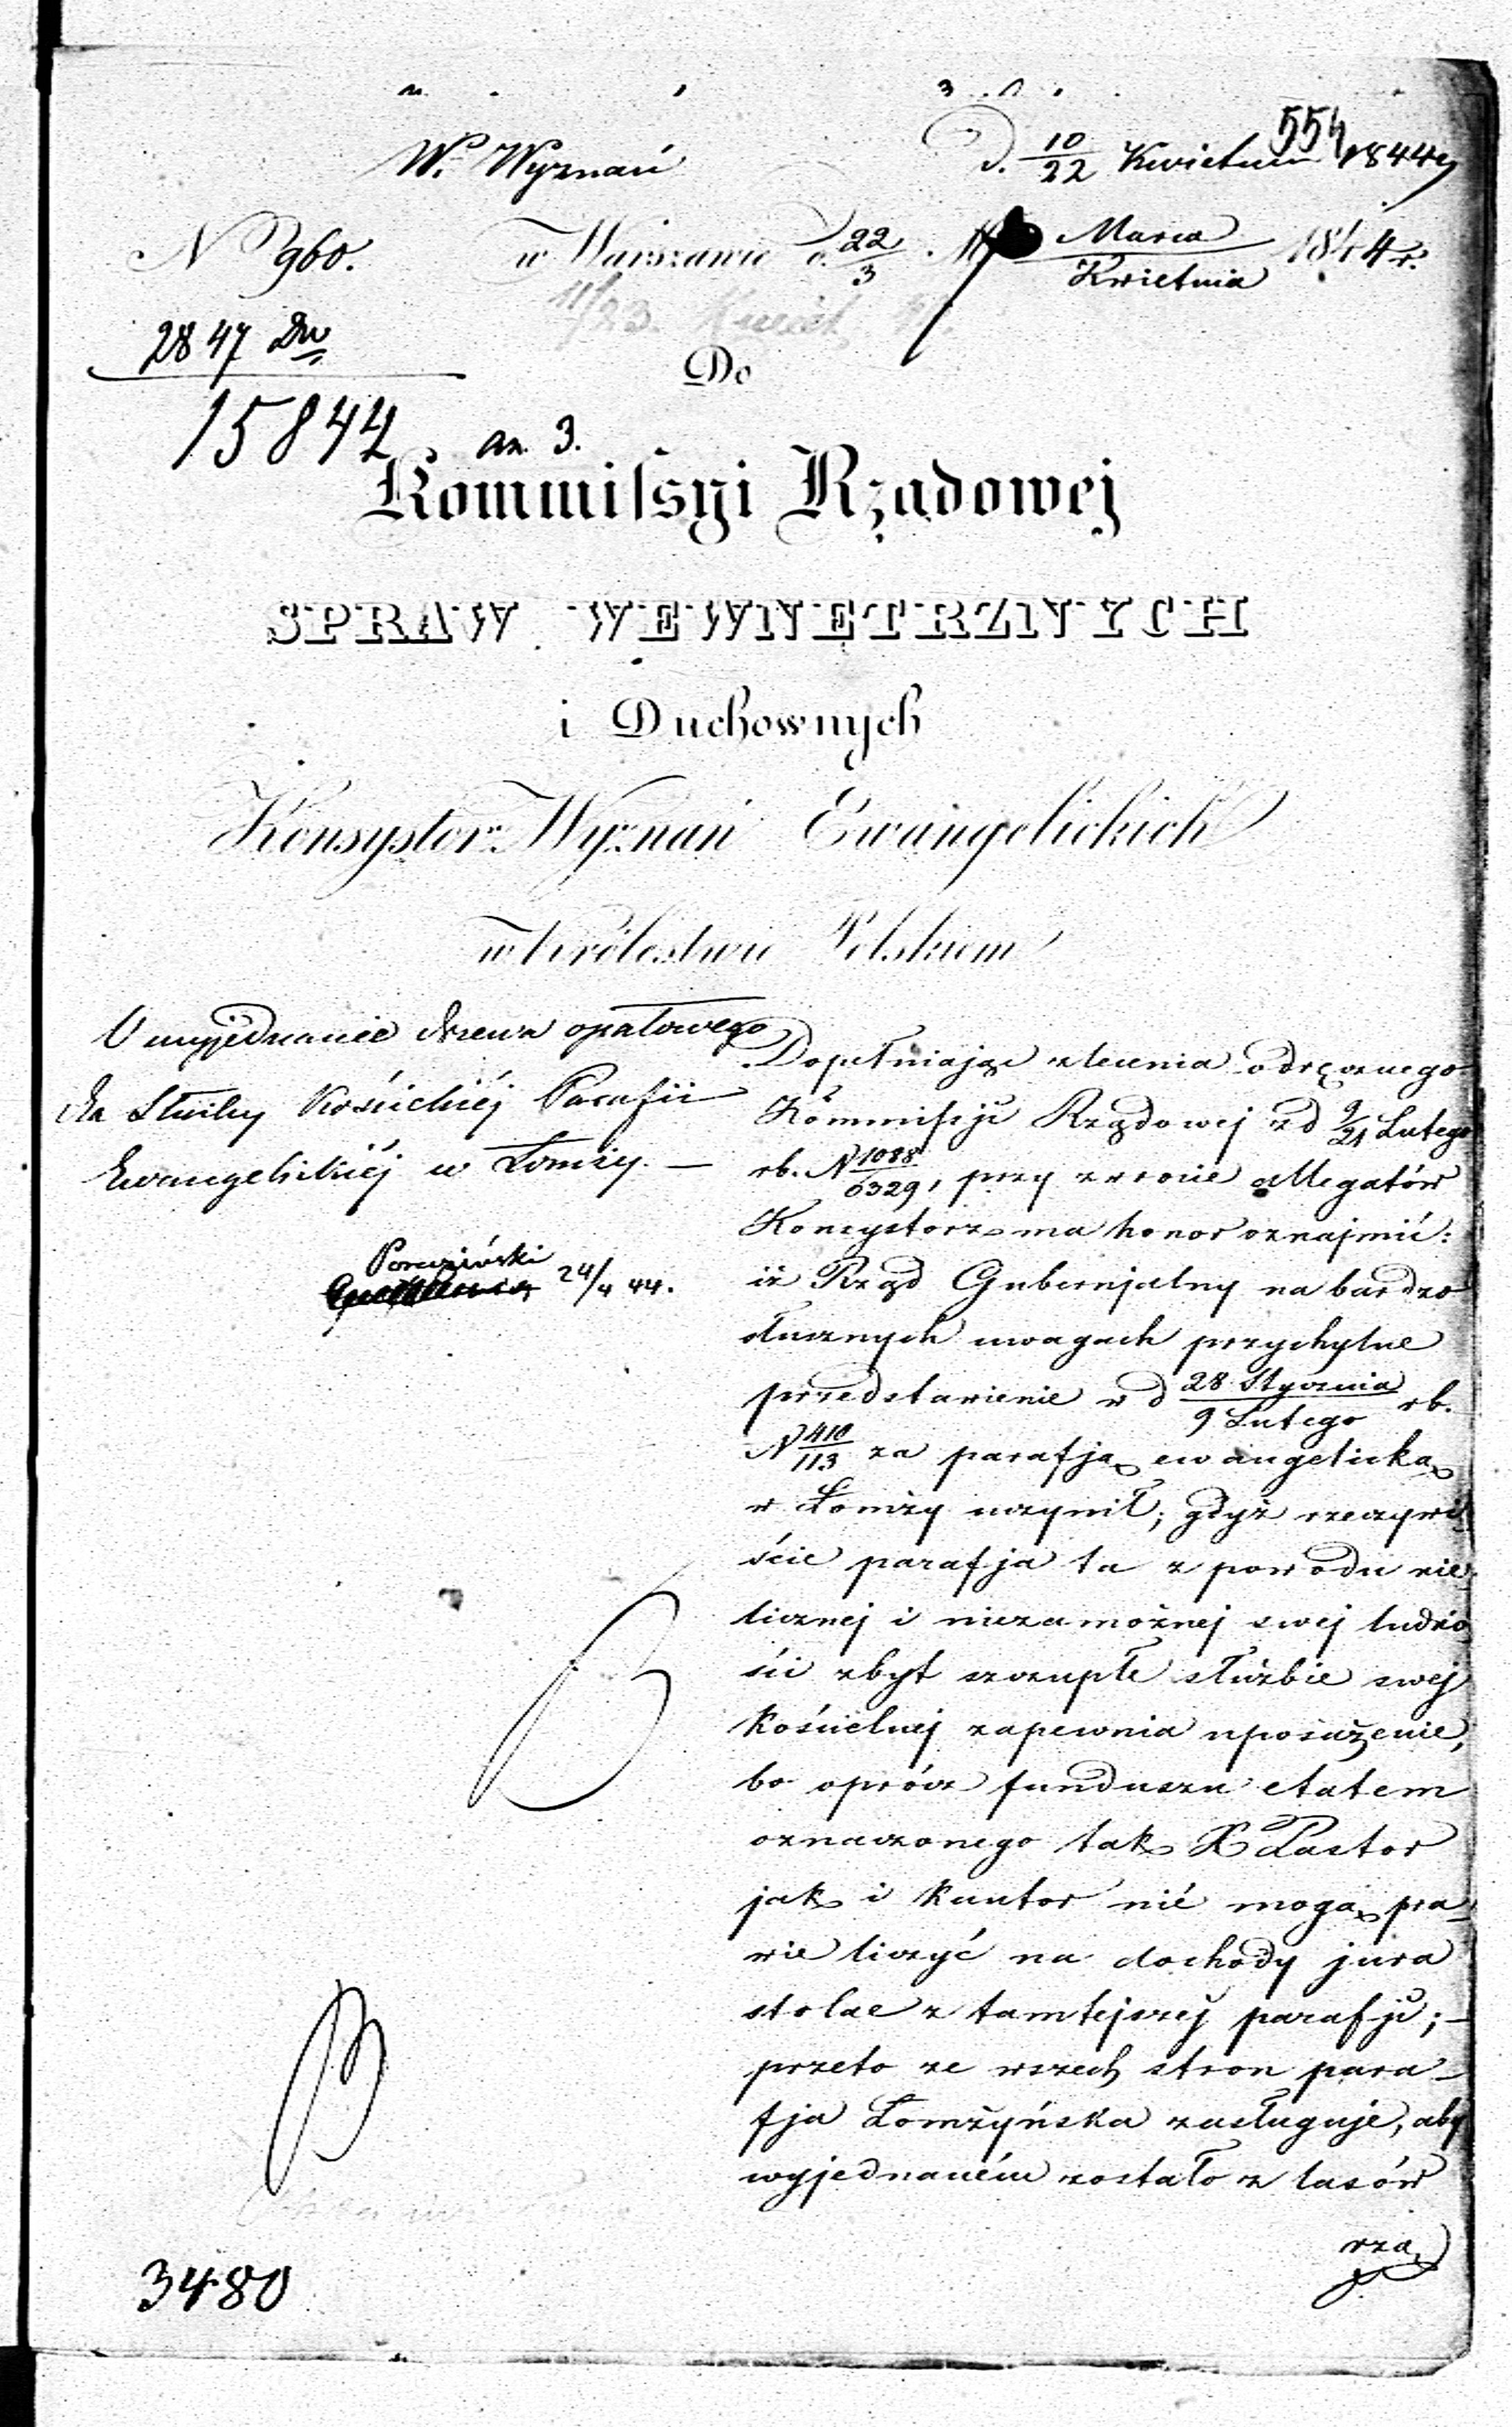 554
Wł. Wyznań
D. 10/22 Kwietnia 1844
N 960.
w Warszawie d. 22/3 M Marca/Kwietnia 1844 r.
11/23.
2847 Dw
Do
15844
an. 3.
Kommissyi Rządowej
SPRAW WEWNĘTRZNYCH
i Duchownych
Konsystorz Wyznań Ewangelickich
w Królestwie Polskiem
O wyjednanie drzewa opałowego
dla Służby Kościelnéj Parafii
Ewangelickiéj w Łomży. —
24/4 44.
Dopełniając zlecenia odręcznego
Kommissji Rządowej z d 9/21 Lutego
rb. N 1088/6329, przy zwrocie allegatów
Konsystorz ma honor oznajmić:
iż Rząd Gubernjalny na bardzo
słusznych uwagach przychylne
przedstawienie w d 28 Stycznia/9 Lutego rb.
N 410/113 za parafją ewangelicką
w Łomży uczynił; gdyż rzeczywi
ście parafja ta z powodu nie
licznej i niezamożnej swej ludno
ści zbyt szczupłe służbie swej
kościelnej zapewnia uposażenie,
bo oprócz funduszu etatem
oznaczonego tak X Pastor
jak i Kantor nie mogą pra-
wie liczyć na dochody jura
stolae z tamtejszej parafji; —
przeto ze wszech stron para-
fja Łomżyńska zasługuje, aby
wyjednaném zostało z lasów
rzą
3480